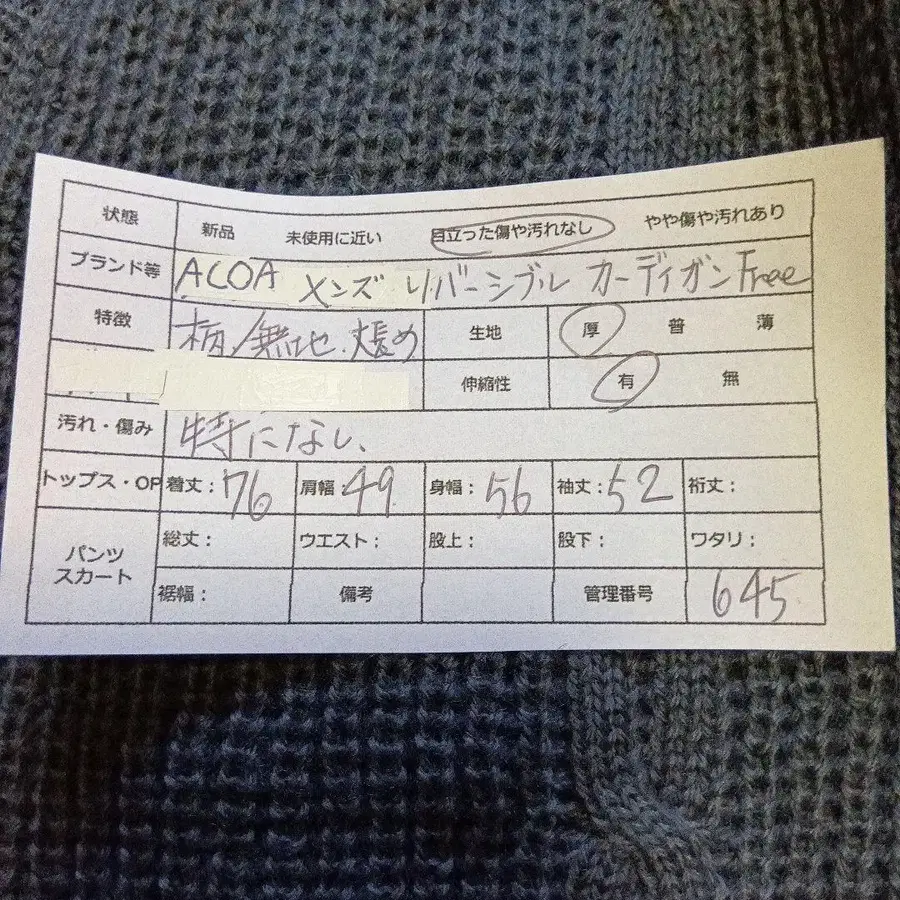 状態 新品 未使用に近い 目立った傷や汚れなし やや傷や汚れあり
ブランド等 ACOA メンズ リバーシブル カーディガン Free
特徴 柄/無地.長め 生地 厚 普 薄
伸縮性 有 無
汚れ・傷み 特になし、
トップス・OP 着丈:76 肩幅:49 身幅:56 袖丈:52 裄丈:
パンツ スカート 総丈: ウエスト: 股上: 股下: ワタリ:
裾幅: 備考 管理番号 645